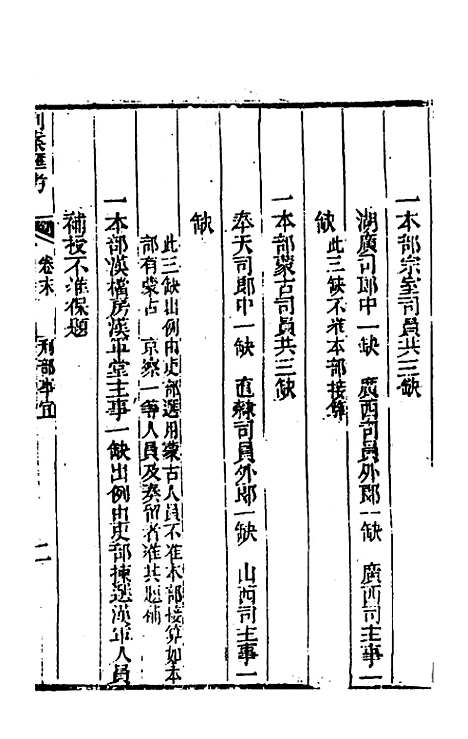 一本部宗室司員共三缺
湖廣司郎中一缺　廣西司員外郎一缺　廣西司主事一
缺此三缺不准本部接算
一本部蒙古司員共三缺
奉天司郎中一缺　直隸司員外郎一缺　山西司主事一
缺
此三缺出例由吏部選用蒙古人員不准本部接算如本
部有蒙古　京察一等人員及奏留者准其題補
一本部漢檔房漢軍堂主事一缺出例由吏部揀選漢軍人員
補授不准保題
刑案匯考　卷末　刑部事宜　二